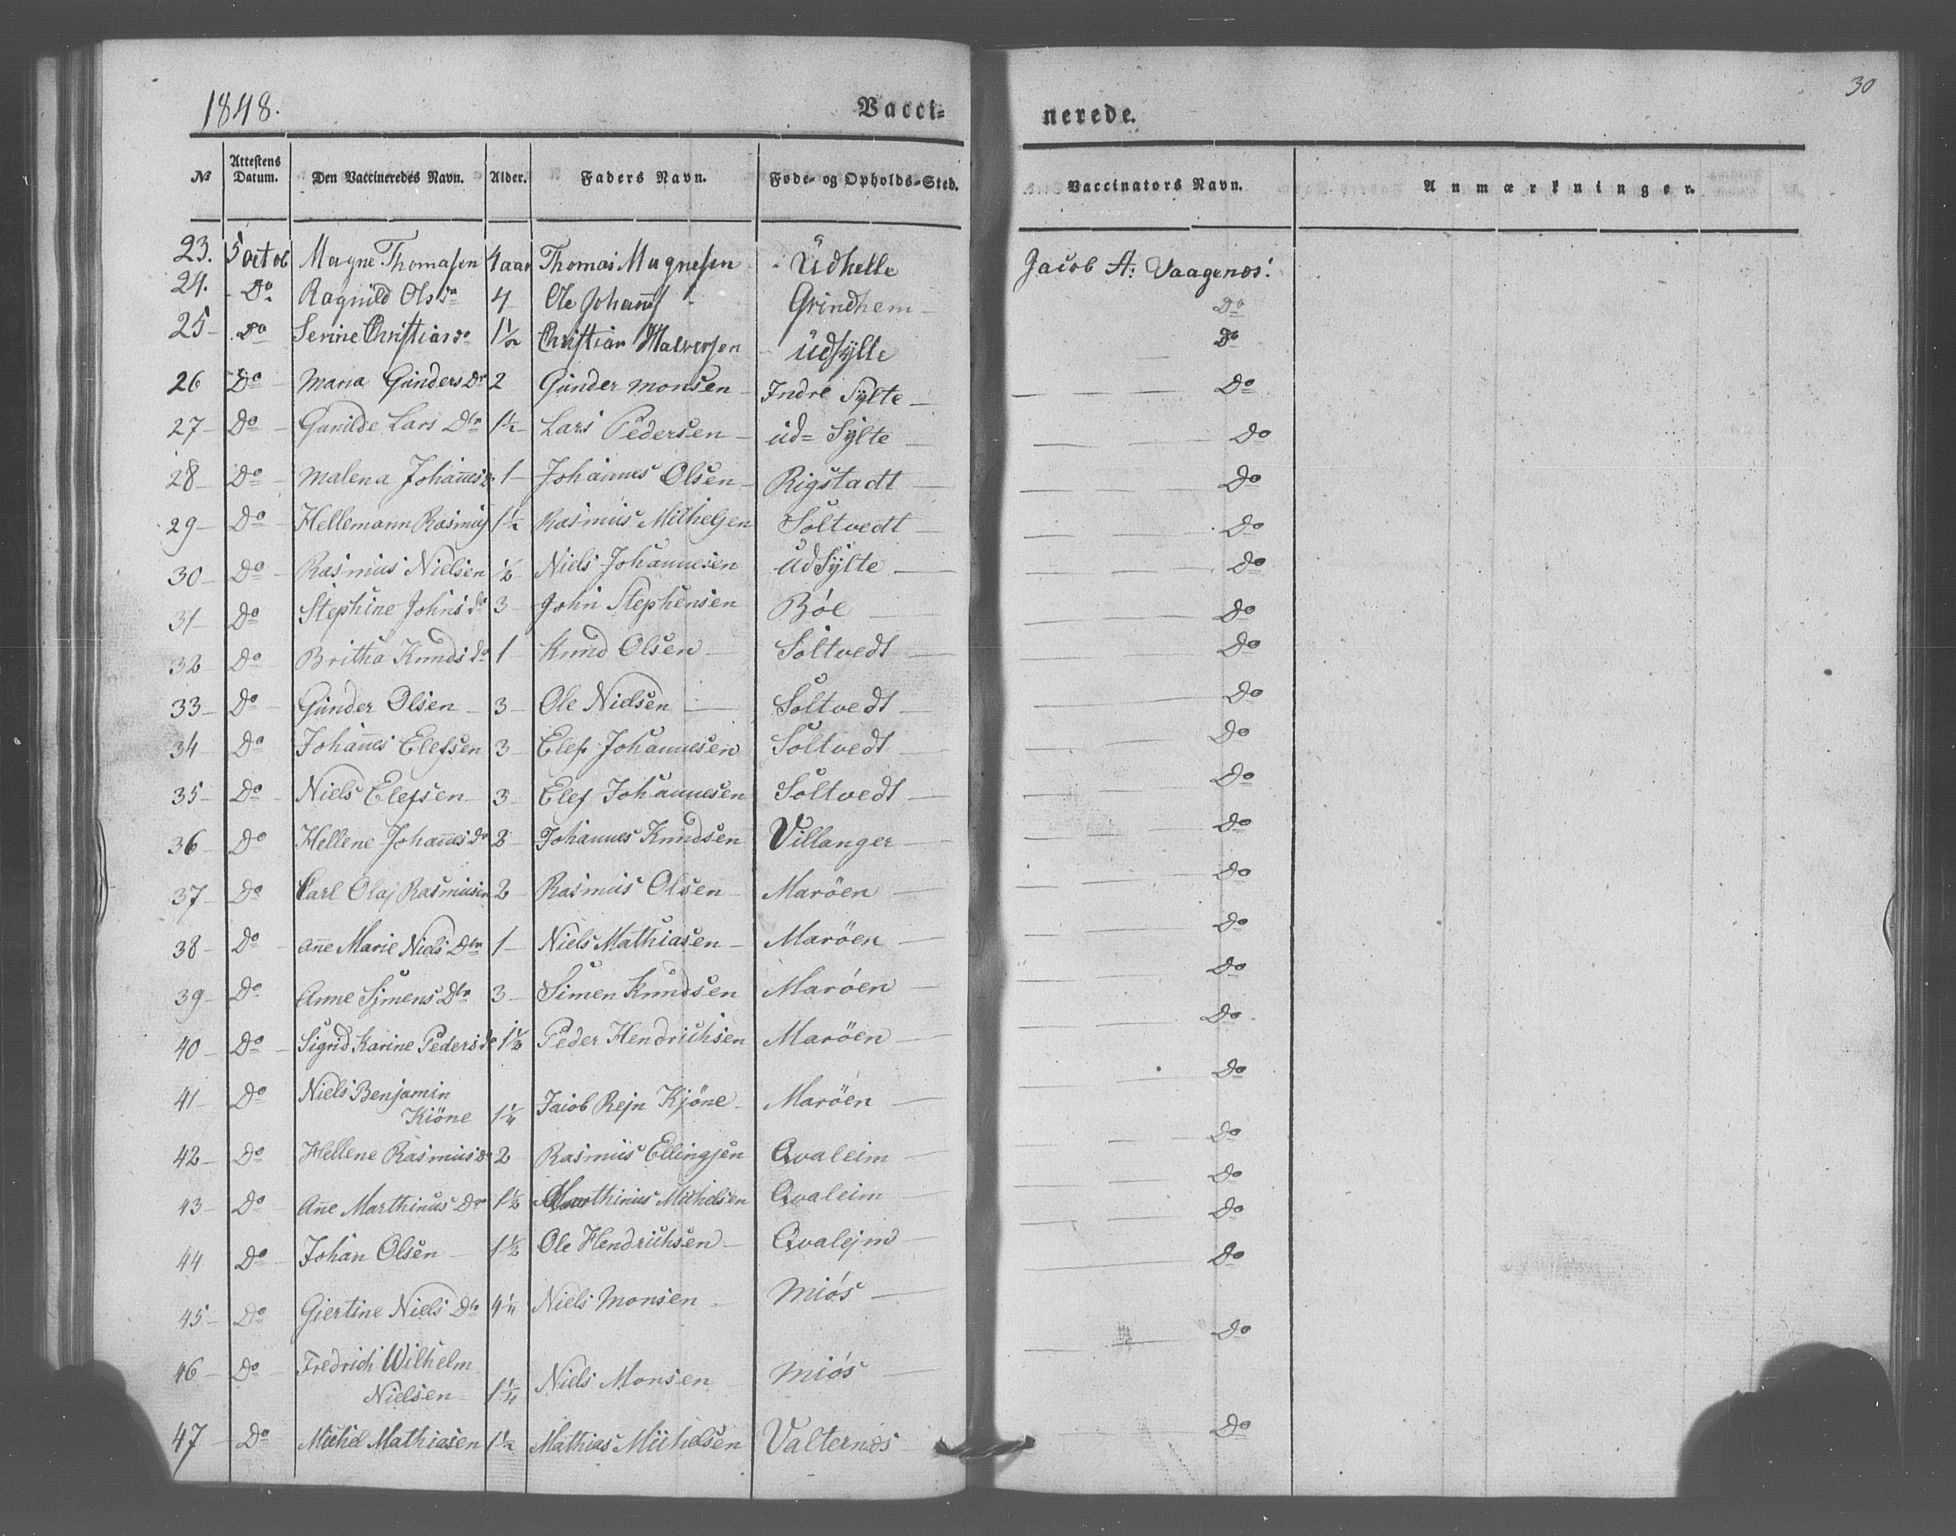 30
1848.
Vacci- nerede.
№ Attestens Datum. Den Vaccineredes Navn. Alder. Faders Navn. Føde- og Opholds-Sted. Vaccinators Navn. Anmærkninger.
23. 5 Octob Magne Thomasen 4 aar Thomas Magnesen Udhelle Jacob A: Vaagenæs.
24. Do Ragnild Ols Dr 4 Ole Johans Grindhem Do
25 Do Serine Christians Dr 1½ Christian Halversen Udsylte Do
26 Do Maria Gunders Dr 2 Gunder Monsen Indre Sylte Do
27 Do Gunilde Lars Dtr 1½ Lars Pedersen ud= Sylte Do
28 Do Malena Johañes D 1 Johannes Olsen Rigstadt Do
29 Do Hellemann Rasmus 1½ Rasmus Michelsen Soltvedt Do
30 Do Rasmus Nielsen ½ Niels Johannesen UdSylte Do
31 Do Stephine Johns dr 3 John Stephensen Böe Do
32 Do Britha Knuds dr 1 Knud Olsen Soltvedt Do
33 Do Gunder Olsen 3 Ole Nielsen Soltvedt Do
34 Do Johañes Elefsen 3 Elef Johannesen Soltvedt Do
35 Do Niels Elefsen 3 Elef Johannesen Soltvedt Do
36 Do Hellene Johañes dr 2 Johannes Knudsen Villanger Do
37 Do Carl Olaj Rasmusen 2 Rasmus Olsen Maröen Do
38 Do Añe Marie Niels Dtr 1 Niels Mathiasen Maröen Do
39 Do Anne Simens Dtr 3 Simen Knudsen Maröen Do
40 Do Sigrid Karine Peders dr 1½ Peder Hendrichsen Maröen Do
41 Do Niels Benjamin
Kiöne 1¼ Jacob Rejn Kjöne Maröen Do
42 Do Hellene Rasmus D 2 Rasmus Ellingsen Qvaleim Do
43 Do Añe Marthinus Dr 1½ Marthinus Michelsen Qvaleim Do
44 Do Johan Olsen 1½ Ole Hendrichsen Qvalejm Do
45 Do Giertine Niels Dtr 4¼ Niels Monsen Miös Do
46 Do Fredrich Wilhelm
Nielsen 1¼ Niels Monsen Miös Do
47 Do Michel Mathiasen 1½ Mathias Michelsen Valternæs Do